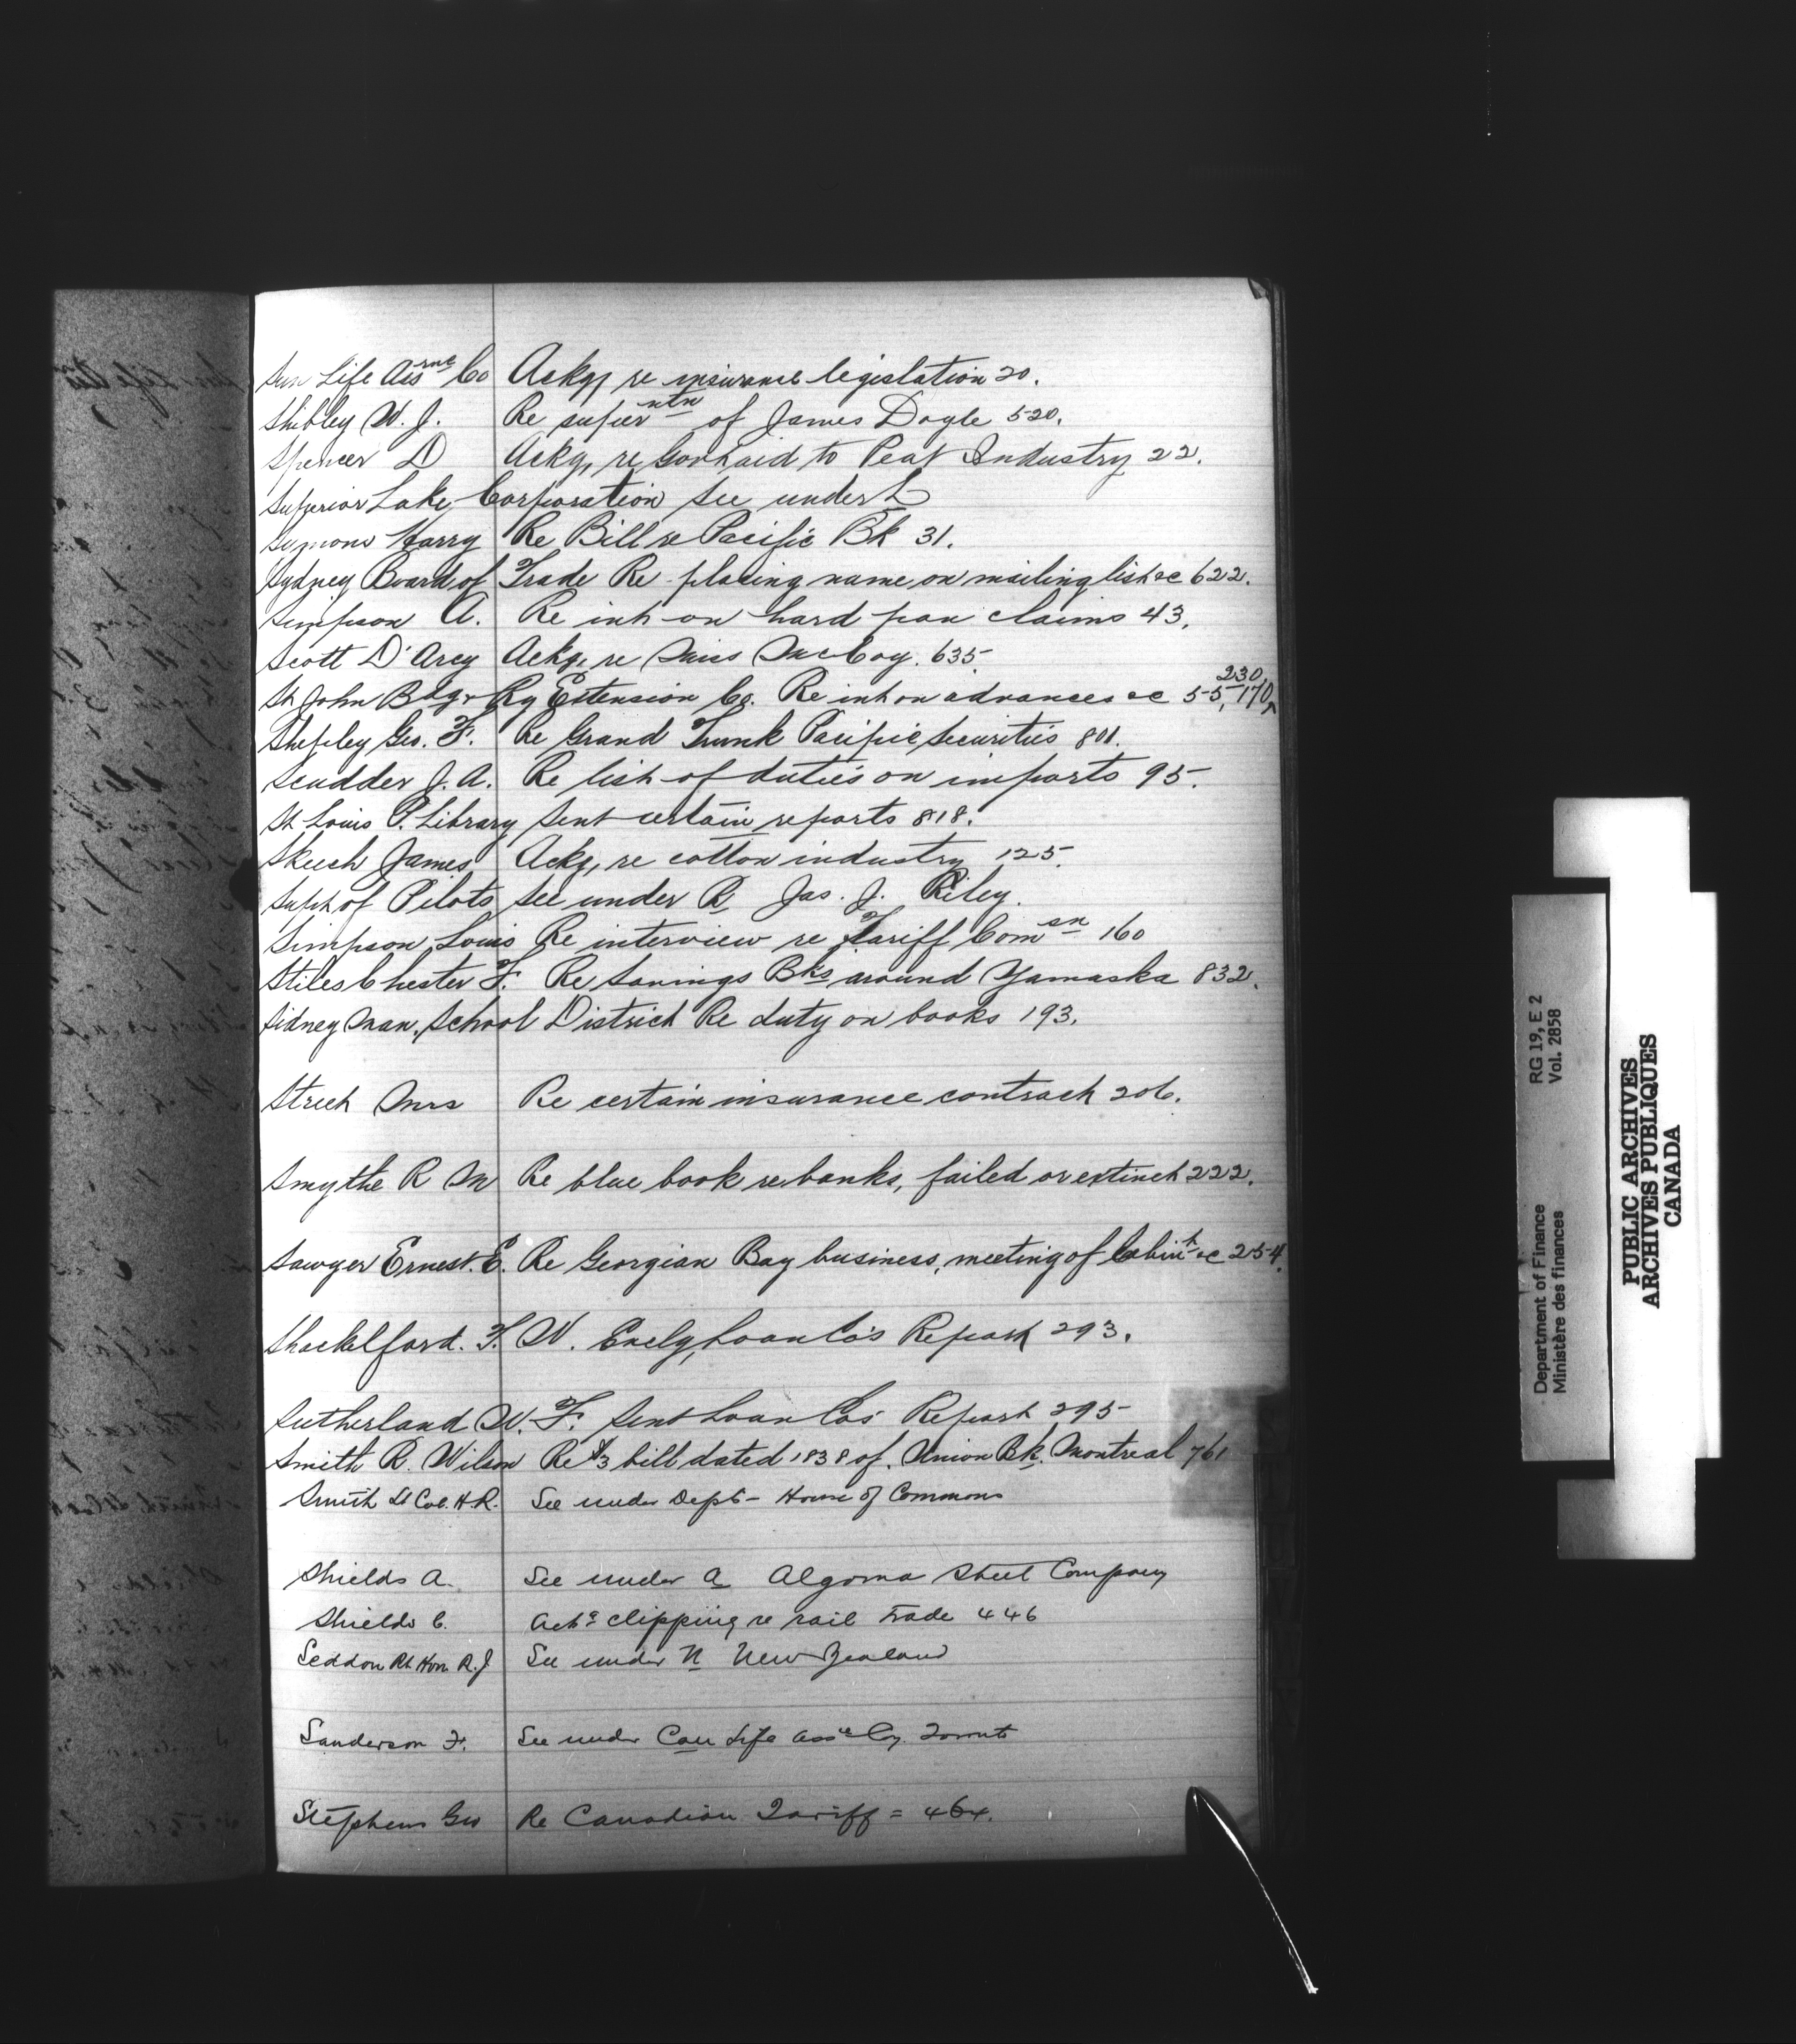 Sun Life Assrnce Co Ackg, re insurance legislation 20.
Shibley W. J. Re superntn of James Doyle 520.
Spencer D Ackg, re Govt aid to Peat Industry 22.
Superior Lake, Corporation see under L
Symons Harry Re Bill re Pacific Bk 31.
Sydney Board of Trade Re placing name on mailing list &c 622.
Simpson A. Re int on hard pan claims 43.
Scott D'Arcy Ackg, re Miss McCoy. 635.
St John Bdg & Ry Extension Co. Re int on advances &c 55, 170, 230,
Shepley Geo. F. Re Grand Trunk Pacific Securities 801.
Scudder J. A. Re list of duties on imports 95.
St Louis P. Library Sent certain reports 818.
Skeech James Ackg, re cotton industry 125.
Supt of Pilots See under R Jas. J. Riley.
Simpson, Louis Re interview re Tariff Comsn 160
Stiles Chester F. Re Savings Bks around Yamaska 832.
Sidney Man. School District Re duty on books 193.
Streeh Mrs Re certain insurance contract 206.
Smythe R M Re blue book re banks, failed or extinct 222.
Sawyer Ernest. E. Re Georgian Bay business, meeting of Cabint &c 254.
Shackelford. F. W. Enclg, Loan Co's Report 293.
Sutherland W. F. Sent Loan Cos' Report 295
Smith R. Wilson Re $3 bill dated 1838 of. Union Bk. Montreal 761
Smith Lt Col. H.R. See under Dept - House of Commons
Shields A. See under A Algoma Steel Company
Shields C. Ackg clipping re rail trade 446
Seddon Rt Hon. R. J. See under N New Zealand
Sanderson F. See under Can Life Assce Coy. Toronto
Stephens Geo Re Canadian Tariff = 464.
Department of Finance RG 19, E 2
Ministère des finances Vol. 2858
PUBLIC ARCHIVES
ARCHIVES PUBLIQUES
CANADA